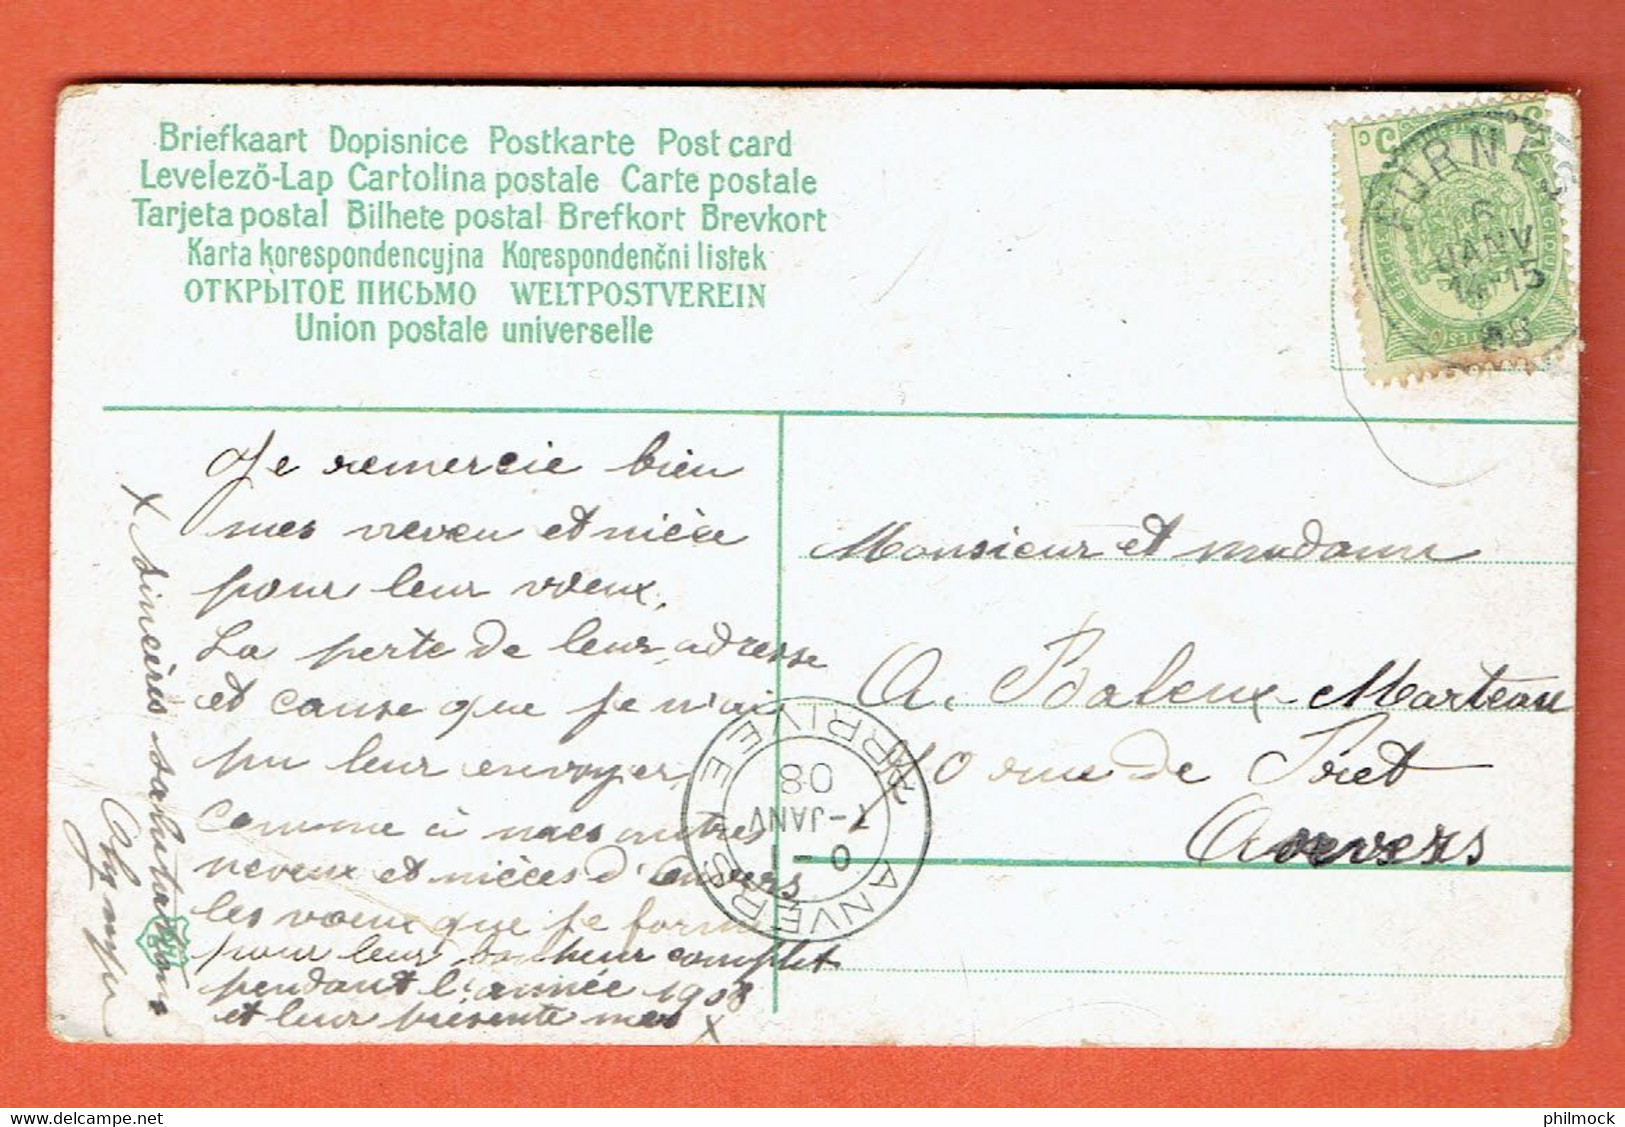 Briefkaart Dopisnice Postkarte Post card
Levelező-Lap Cartolina postale Carte postale
Tarjeta postal Bilhete postal Brefkort Brevkort
Karta korespondencyjna Korespondenčni listek
ОТКРЫТОЕ ПИСЬМО WELTPOSTVEREIN
Union postale universelle
FURNES
6
JANV
15
08
Je remercie bien
mes neveu et nièce
pour leur vœux.
La perte de leur adresse
et cause que je n'ai
pu leur envoyer
comme à mes autres
neveux et nièces d'Anvers
les vœux que je forme
pour leur bonheur complet
pendant l'année 1908
et leur présente mes x
x sincères salutations
Olympe
Monsieur et madame
A. Baleux-Marteau
10 rue de Pret
Anvers
ANVERS
ARRIVEE
7-JANV
08
philmock